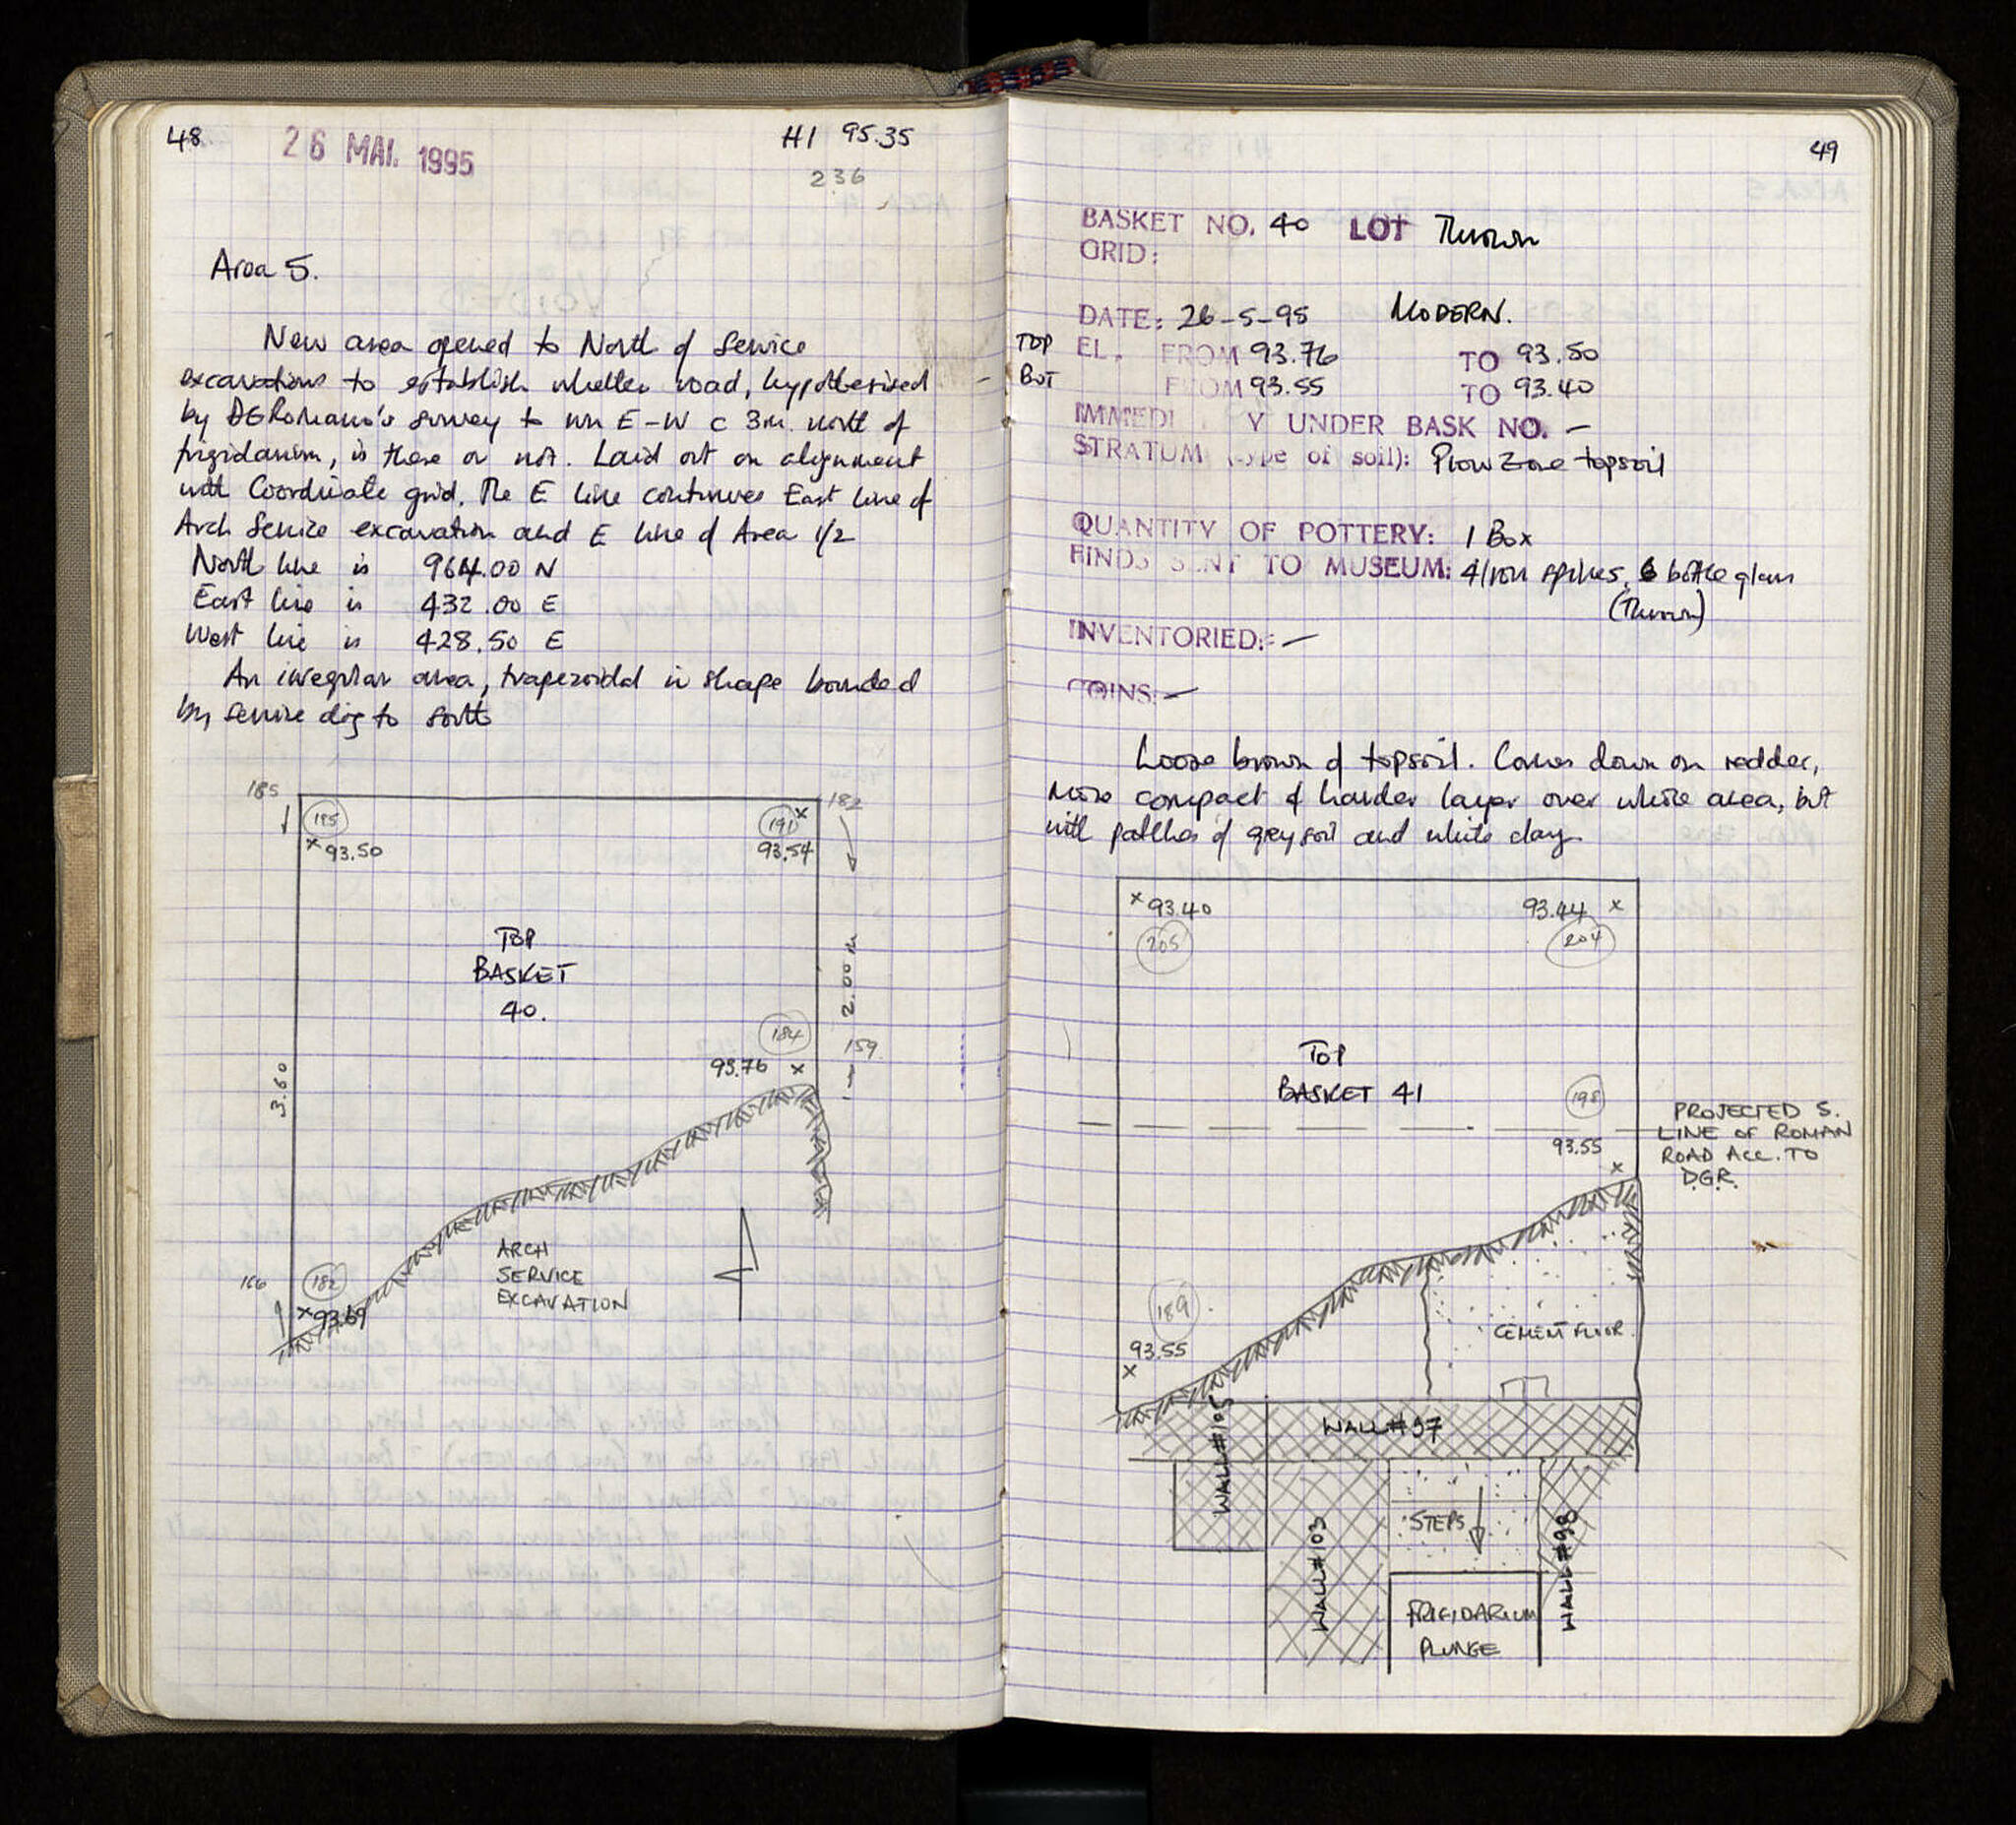 48
26 MAI. 1995
HI 95.35
236
Area 5.
New area opened to North of Service
excavations to establish whether road, hypothesised
by DGRomano's survey to run E-W c 3m. north of
frigidarium, is there or not. Laid out on alignment
with Coordinate grid. The E line continues East line of
Arch Service excavation and E line of Area 1/2
North line is 964.00 N
East line is 432.00 E
West line is 428.50 E
An irregular area, trapezoidal in shape bounded
by service dig to south
185
182
195
191
93.50
93.54
TOP
BASKET
40.
2.00 m
184
159
93.76
3.60
ARCH
SERVICE
EXCAVATION
166
182
93.69
49
BASKET NO. 40 LOT Thrown
GRID:
DATE: 26-5-95 MODERN.
TOP EL. FROM 93.76 TO 93.50
BOT FROM 93.55 TO 93.40
IMMEDI Y UNDER BASK NO. -
STRATUM (type of soil): Plow Zone topsoil
QUANTITY OF POTTERY: 1 Box
FINDS SENT TO MUSEUM: 4 iron spikes, 6 bottle glass
(Thrown)
INVENTORIED: -
COINS: -
Loose brown of topsoil. Comes down on redder,
more compact & harder layer over whole area, but
with patches of grey soil and white clay.
93.40
93.44
205
204
TOP
BASKET 41
198
93.55
PROJECTED S.
LINE OF ROMAN
ROAD ACC. TO
D.G.R.
189
93.55
CEMENT FLOOR.
WALL #97
WALL #105
WALL #103
STEPS
WALL #98
FRIGIDARIUM
PLUNGE